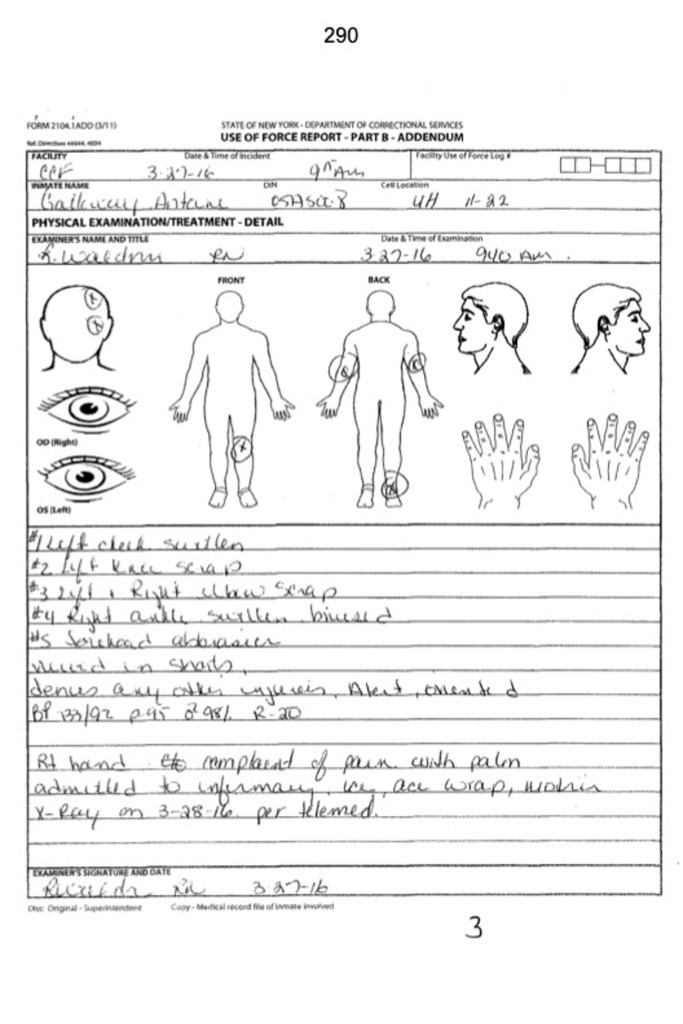 290
FORM 2104.1ADD (3/11)
STATE OF NEW YORK - DEPARTMENT OF CORRECTIONAL SERVICES
USE OF FORCE REPORT - PART B - ADDENDUM
Ref. Directives #4944, 4004
FACILITY Date & Time of Incident Facility Use of Force Log #
CCF 3-27-16 Am
INMATE NAME DIN Cell Location
Antoine UH 11-22
PHYSICAL EXAMINATION/TREATMENT - DETAIL
EXAMINER'S NAME AND TITLE Date & Time of Examination
RN 3-27-16 940 Am.
FRONT BACK
OD (Right)
OS (Left)
#1 left cheek swollen
#2 left knee scrap
#3 left + Right elbow scrap
#4 Right ankle swollen bruised
#5 forehead abbrasion
in shorts,
denies any other injuries, Alert, oriented
BP 133/92 p 95 98% R-20
Rt hand complaint of pain with palm
admitted to infirmary, ice, ace wrap, motrin
X-Ray on 3-28-16. per telemed.
EXAMINER'S SIGNATURE AND DATE
RN 3-27-16
Dist: Original - Superintendent Copy - Medical record file of inmate involved
3